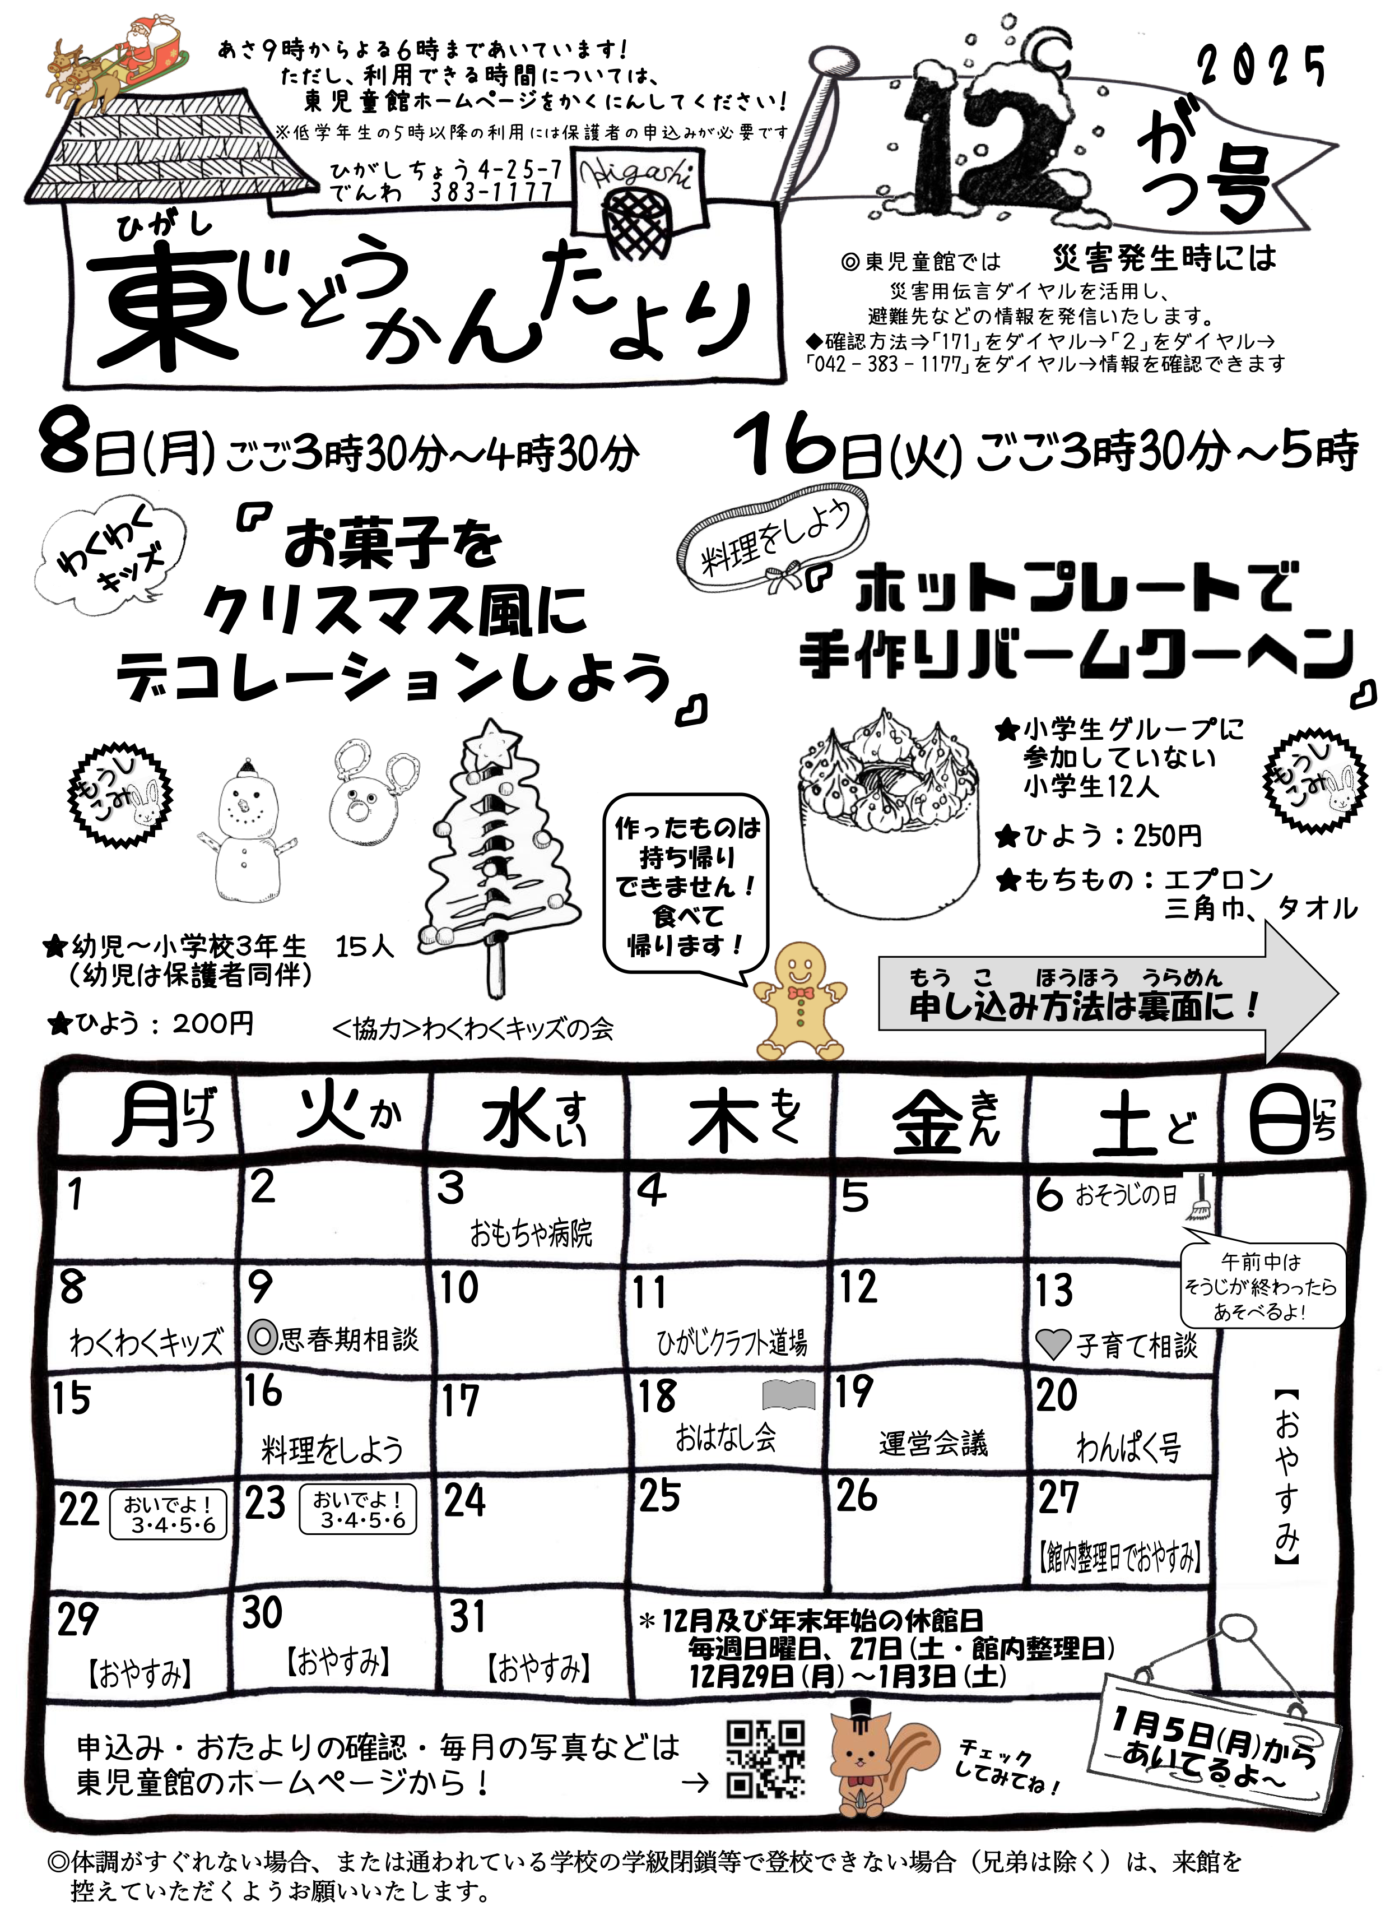 あさ9時からよる6時まであいています!
ただし、利用できる時間については、
東児童館ホームページをかくにんしてください!
※低学年生の5時以降の利用には保護者の申込みが必要です
ひがしちょう4-25-7
でんわ 383-1177
Higashi
ひがし
東じどうかんたより
2025
12がつ号
◎東児童館では 災害発生時には
災害用伝言ダイヤルを活用し、
避難先などの情報を発信いたします。
◆確認方法⇒「171」をダイヤル→「2」をダイヤル→
「042-383-1177」をダイヤル→情報を確認できます
8日(月)ごご3時30分~4時30分
わくわく
キッズ
『お菓子を
クリスマス風に
デコレーションしよう』
もうし
こみ
★幼児~小学校3年生 15人
(幼児は保護者同伴)
★ひよう:200円
<協力>わくわくキッズの会
16日(火)ごご3時30分~5時
料理をしよう
『ホットプレートで
手作りバームクーヘン』
★小学生グループに
参加していない
小学生12人
★ひよう:250円
★もちもの:エプロン
三角巾、タオル
もうし
こみ
作ったものは
持ち帰り
できません!
食べて
帰ります!
もう こ ほうほう うらめん
申し込み方法は裏面に!
月げつ 火か 水すい 木もく 金きん 土ど 日にち
1
2
3
おもちゃ病院
4
5
6 おそうじの日
午前中は
そうじが終わったら
あそべるよ!
8
わくわくキッズ
9
◎思春期相談
10
11
ひがじクラフト道場
12
13
♥子育て相談
15
16
料理をしよう
17
18
おはなし会
19
運営会議
20
わんぱく号
22
おいでよ!
3・4・5・6
23
おいでよ!
3・4・5・6
24
25
26
27
【館内整理日でおやすみ】
29
【おやすみ】
30
【おやすみ】
31
【おやすみ】
【おやすみ】
*12月及び年末年始の休館日
毎週日曜日、27日(土・館内整理日)
12月29日(月)~1月3日(土)
申込み・おたよりの確認・毎月の写真などは
東児童館のホームページから! →
チェック
してみてね!
1月5日(月)から
あいてるよ~
◎体調がすぐれない場合、または通われている学校の学級閉鎖等で登校できない場合(兄弟は除く)は、来館を
控えていただくようお願いいたします。